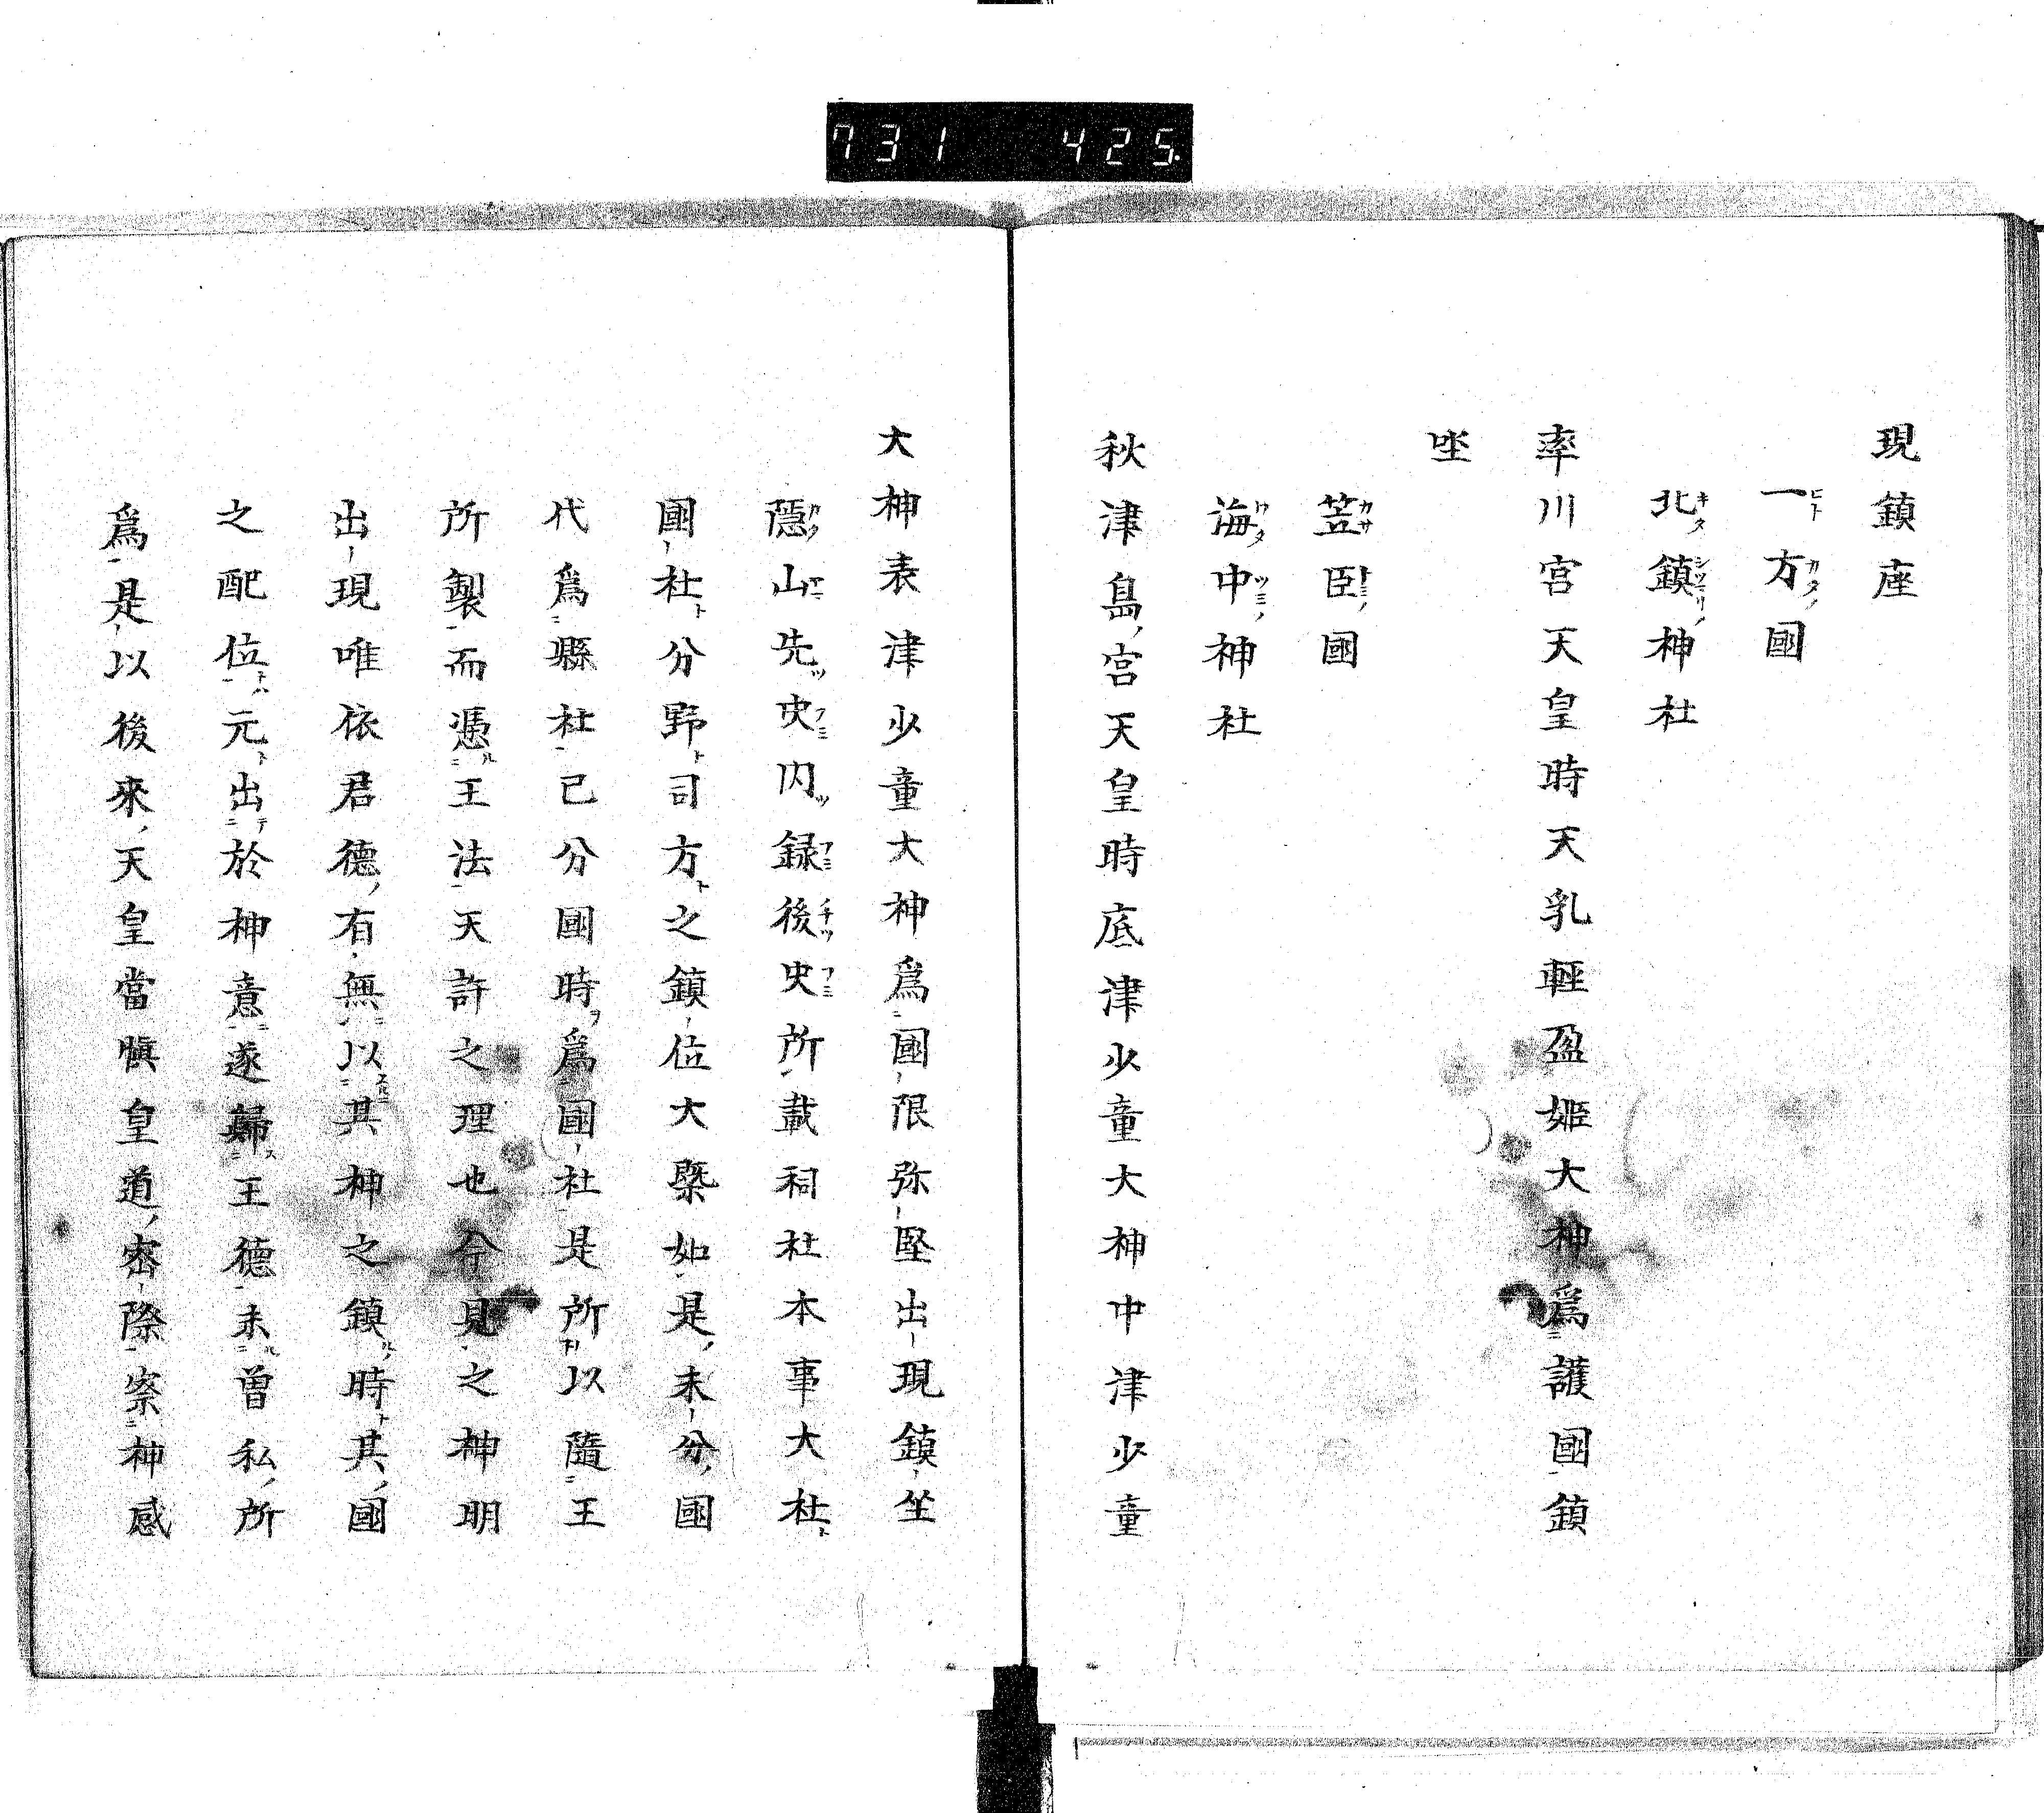 731 425.
現鎮座
一方國
北鎮神社
率川宮天皇時天乳輕盈姫大神為護國鎮
坐
笠臣國
海中神社
秋津島宮天皇時底津少童大神中津少童
大神表津少童大神為國限弥堅出現鎮坐
隱山先史内録後史所載祠社本事大社
國社分野司方之鎮位大槩如是未分國
代為縣社已分國時為國社是所以隨王
所製而憑王法天許之理也今見之神明
出現唯依君德有無以其神之鎮時其國
之配位元出於神意遂歸王德未曽私所
為是以後來天皇當慎皇道密際察神感